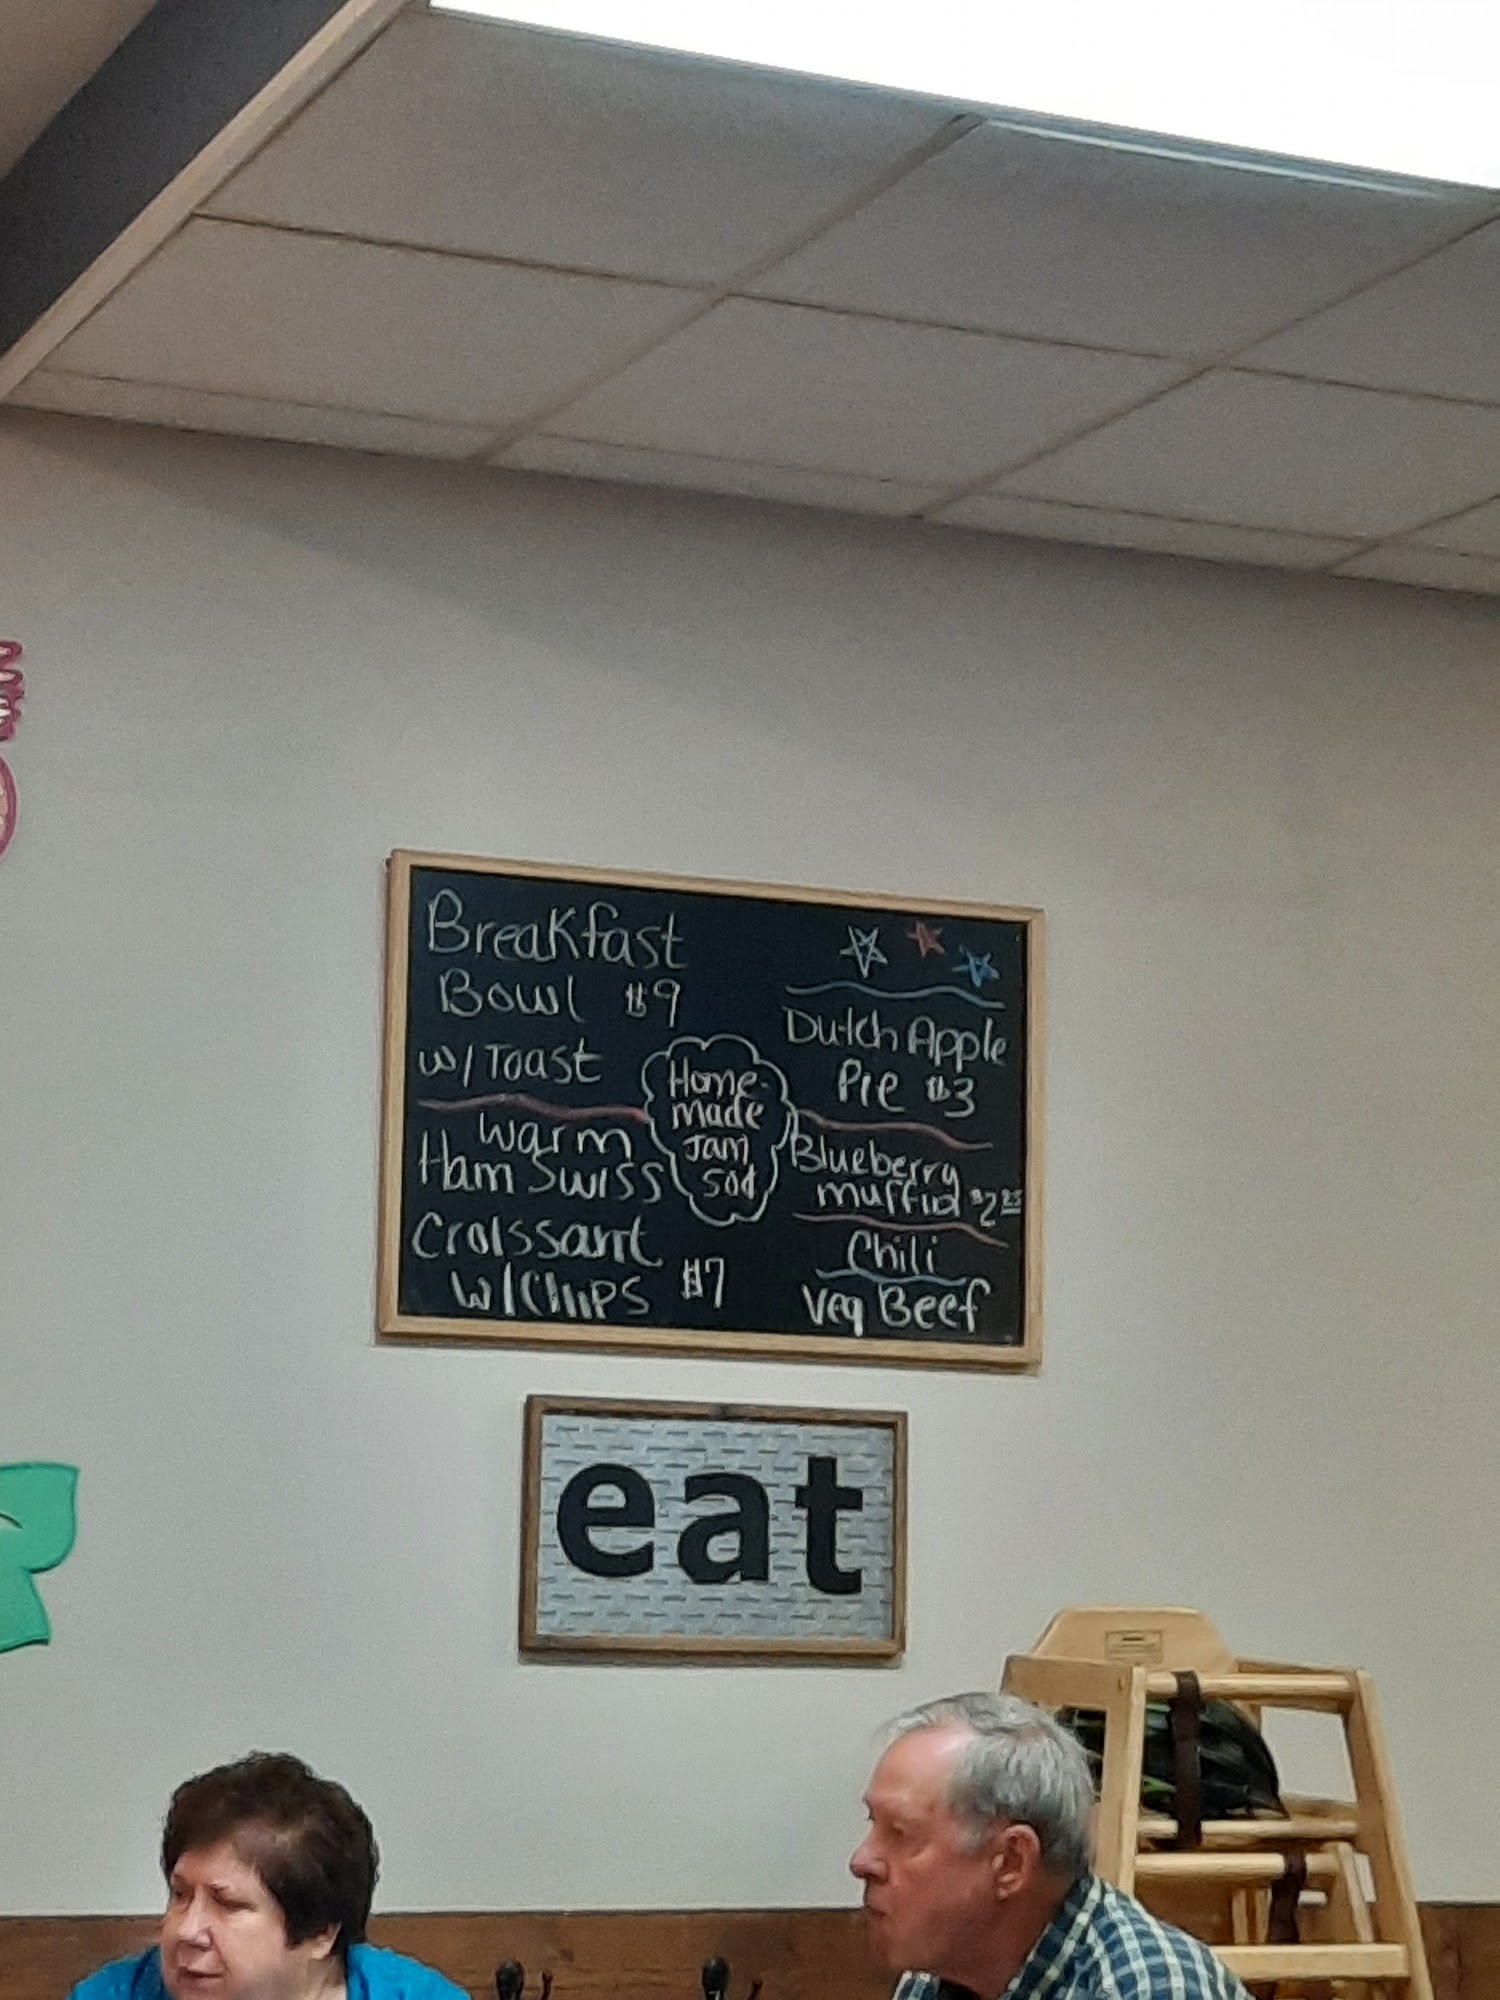 Breakfast
Bowl $9
w/Toast
Warm
Ham Swiss
Croissant
w/Chips $7
Home-
made
Jam
50¢
Dutch Apple
Pie $3
Blueberry
muffin $2 25
Chili
Veg Beef
eat